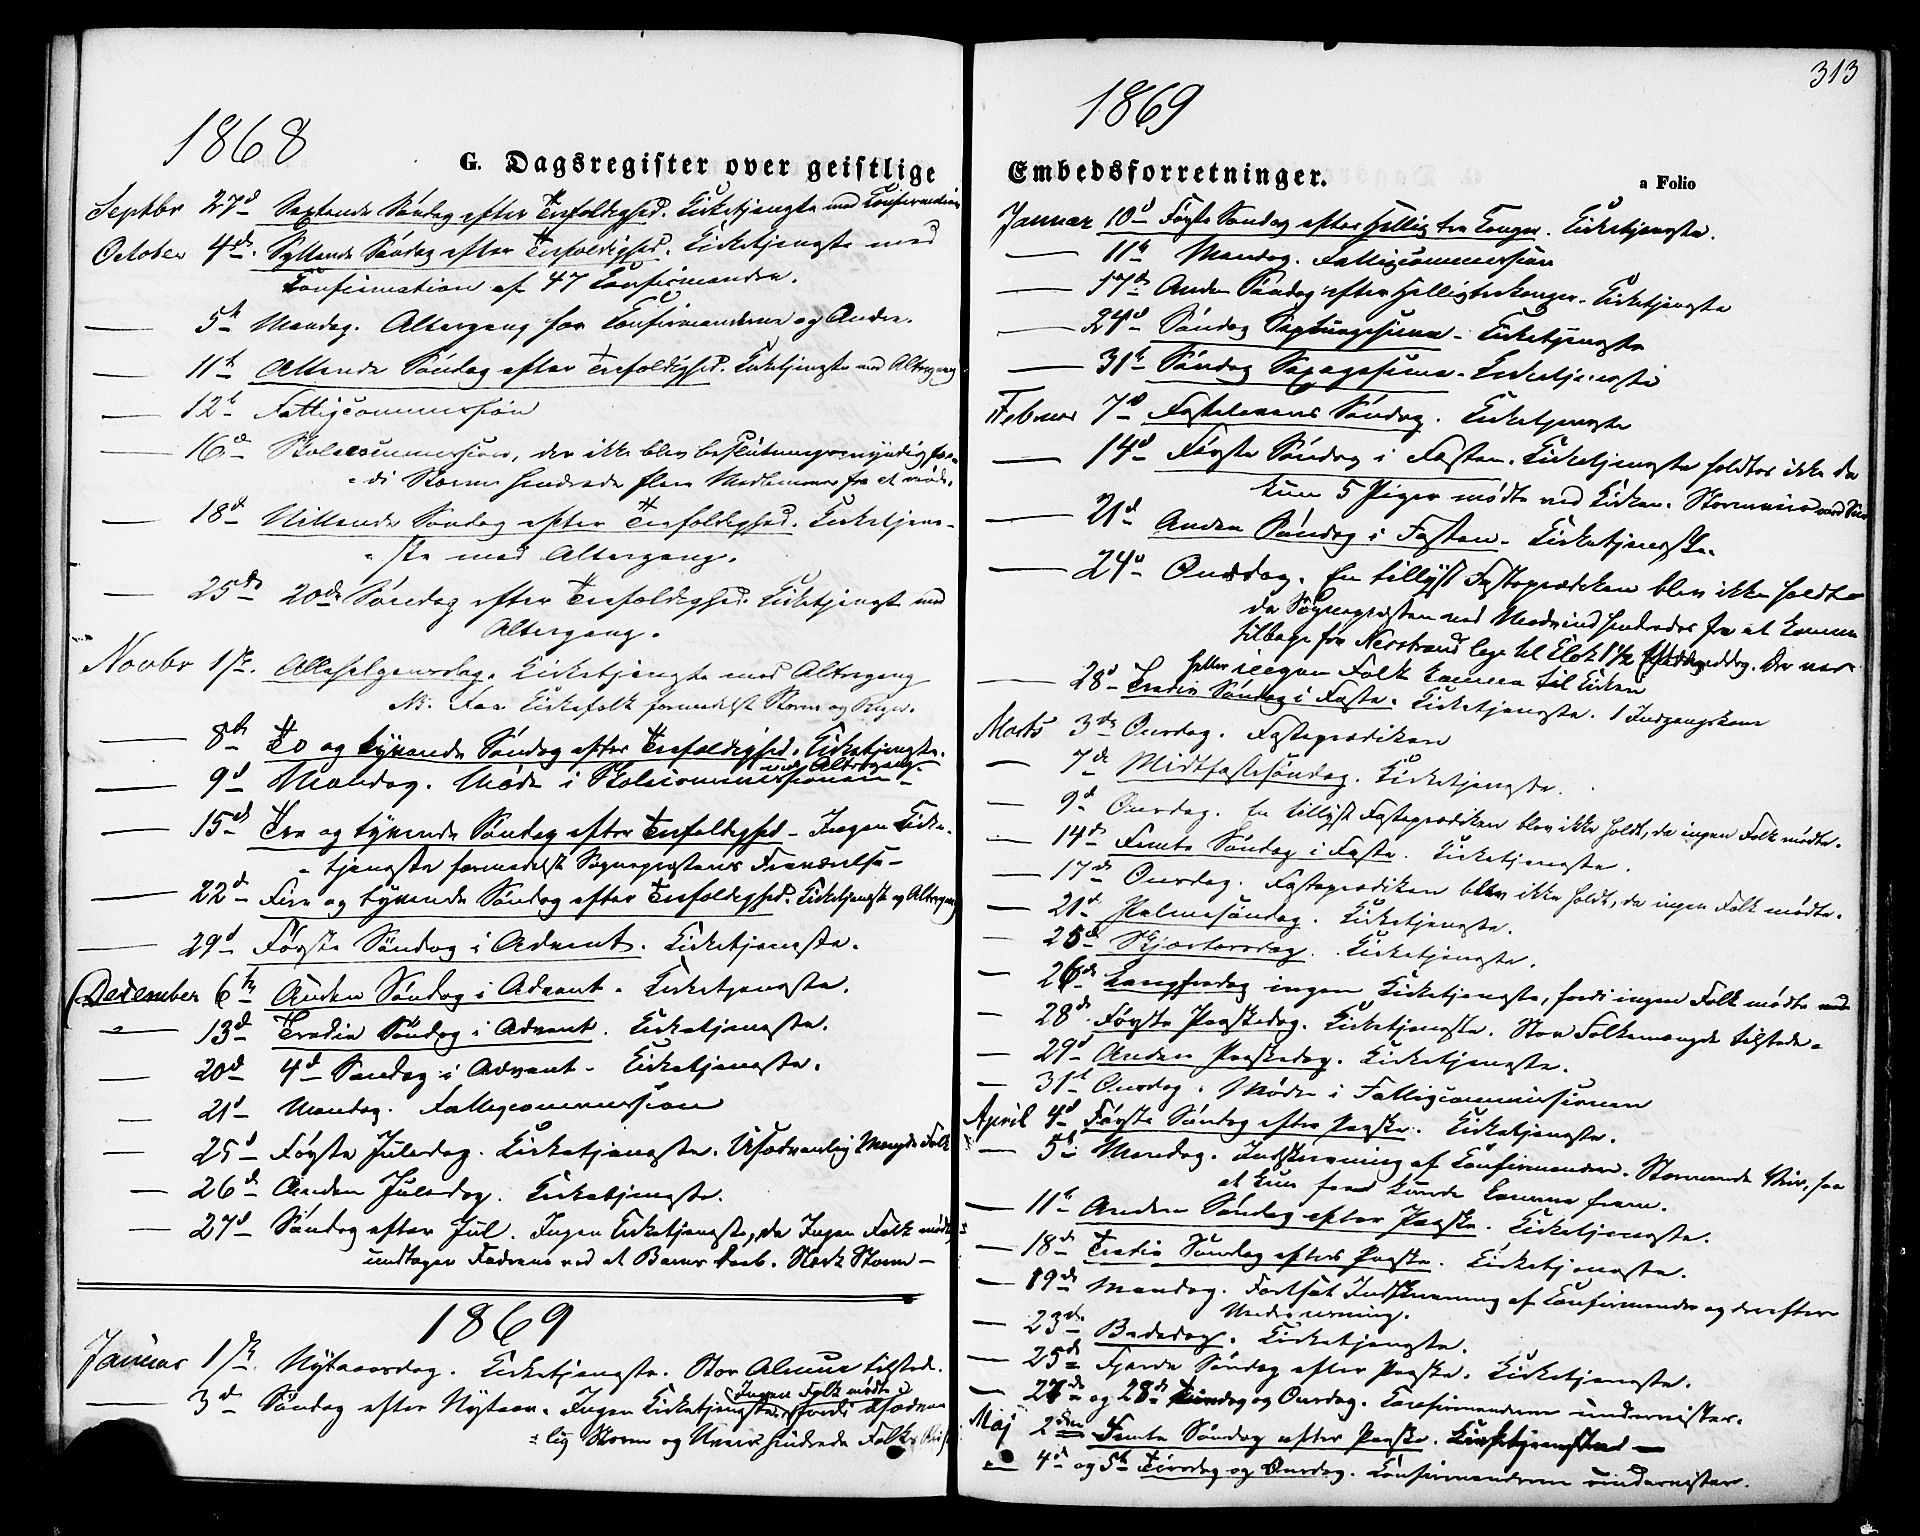 1868
G. Dagsregister over geistlige
Septbr 27d Sextende Søndag efter Trefoldighed. Kirketjeneste med Confirmation
October 4de. Syttende Søndag efter Trefoldighed. Kirketjeneste med
Confirmation af 47 Confirmander.
— 5te Mandag. Altergang for Confirmanderne og Andre.
— 11te Attende Søndag efter Trefoldighed. Kirketjeneste med Altergang
— 12te Fattigcommission
— 16de Skolecommission, der ikke blev beslutningsmyndig, for-
di Storm hindrede flere Medlemmer fra at møde.
— 18de Nittende Søndag efter Trefoldighed. Kirketjene-
ste med Altergang.
— 25de 20de Søndag efter Trefoldighed. Kirketjeneste med
Altergang.
Novbr 1ste. Allehelgensdag. Kirketjeneste med Altergang
Faa Kirkefolk formedelst Storm og Regn.
— 8de To og tyvende Søndag efter Trefoldighed. Kirketjeneste
med Altergang.
— 9de Mandag. Møde i Skolecommissionen
— 15de Tre og tyvende Søndag efter Trefoldighed – Ingen Kirke-
tjeneste formedelst Sognepræstens Fraværelse –
— 22de Fire og tyvende Søndag efter Trefoldighed. Kirketjeneste og Altergang
— 29de Første Søndag i Advent. Kirketjeneste.
December 6te Anden Søndag i Advent. Kirketjeneste.
— 13de Tredie Søndag i Advent. Kirketjeneste.
— 20de 4de Søndag i Advent – Kirketjeneste.
— 21de Mandag. Fattigcommission
— 25de Første Juledag. Kirketjeneste. Usædvanlig Mængde Folk
— 26de Anden Juledag. Kirketjeneste.
— 27de Søndag efter Jul. Ingen Kirketjeneste, da Ingen Folk mødte
undtagen Fadrene ved et Barns Daab. Stærk Storm –
1869
Januar 1ste. Nytaarsdag. Kirketjeneste. Stor Almue tilstede.
Ingen Folk mødte
— 3de Søndag efter Nytaar. Ingen Kirketjeneste, fordi usædvan
lig Storm og Uveir hindrede Folks
313
1869
Embedsforretninger.
a Folio
Januar 10de Første Søndag efter Hellig tre Konger. Kirketjeneste.
— 11te Mandag. Fattigcommission
— 17de Anden Søndag efter Helligtrekonger. Kirketjeneste
— 24de Søndag Septuagesima – Kirketjeneste
— 31te Søndag Sexagesima – Kirketjeneste
Februar 7de Fastelavens Søndag. Kirketjeneste
— 14de Første Søndag i Fasten. Kirketjeneste holdtes ikke da
kun 5 Piger mødte ved Kirken. Stormveir
— 21de Anden Søndag i Fasten. Kirketjeneste.
— 24de Onsdag. En tillyst Fasteprædiken blev ikke holdt
da Sognepræsten ved Modvind hindredes fra at komme
tilbage fra Nerstrand lige til Klok 1½ Eftermiddag. Der var
heller ingen Folk komne til Kirken
— 28de Tredie Søndag i Faste. Kirketjeneste. 1 Indgangskone
Marts 3de Onsdag. Fasteprædiken
— 7de Midtfastesøndag. Kirketjeneste.
— 9de Onsdag. En tillyst Fasteprædiken blev ikke holdt, da ingen Folk mødte.
— 14de Femte Søndag i Faste. Kirketjeneste.
— 17de Onsdag. Fasteprædiken blev ikke holdt, da ingen Folk mødte.
— 21de Palmesøndag. Kirketjeneste.
— 25de Skjærtorsdag. Kirketjeneste.
— 26de Langfredag ingen Kirketjeneste, fordi ingen Folk mødte
— 28de Første Paaskedag. Kirketjeneste. Stor Folkemængde tilstede.
— 29de Anden Paaskedag. Kirketjeneste.
— 31te Onsdag. Møde i Fattigcommissionen
April 4de Første Søndag efter Paaske. Kirketjeneste.
— 5te Mandag. Indskrivning af Confirmander. Stormende Veir, saa
at kun faae kunde komme frem.
— 11te Anden Søndag efter Paaske. Kirketjeneste.
— 18de Tredie Søndag efter Paaske. Kirketjeneste.
— 19de Mandag. Fortsat Indskrivning af Confirmander og derefter
Underviisning.
— 23de Bededag. Kirketjeneste.
— 25de Fjerde Søndag efter Paaske. Kirketjeneste.
— 27de og 28de Tirsdag og Onsdag. Confirmanderne undervistes.
Maj 2den Femte Søndag efter Paaske. Kirketjeneste –
— 4de og 5te Tirsdag og Onsdag. Confirmanderne undervistes.